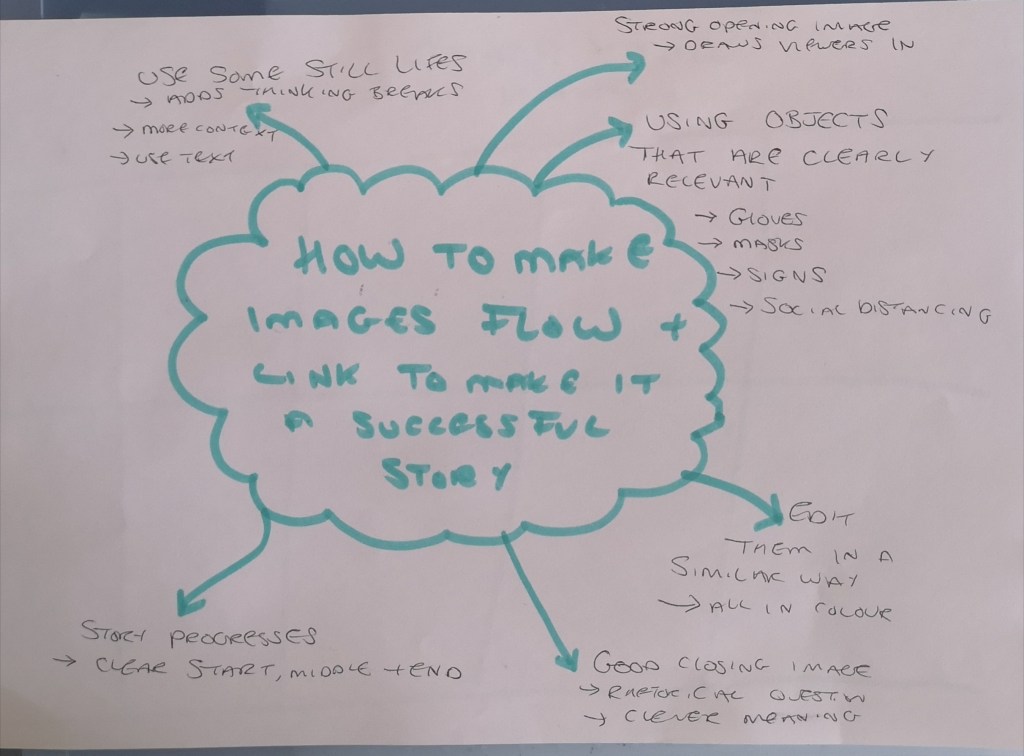 HOW TO MAKE
IMAGES FLOW +
LINK TO MAKE IT
A SUCCESSFUL
STORY
USE SOME STILL LIFES
→ ADDS THINKING BREAKS
→ MORE CONTEXT
→ USE TEXT
STRONG OPENING IMAGE
→ DRAWS VIEWERS IN
USING OBJECTS
THAT ARE CLEARLY
RELEVANT
→ GLOVES
→ MASKS
→ SIGNS
→ SOCIAL DISTANCING
EDIT
THEM IN A
SIMILAR WAY
→ ALL IN COLOUR
GOOD CLOSING IMAGE
→
→ CLEVER MEANING
STORY PROGRESSES
→ CLEAR START, MIDDLE + END